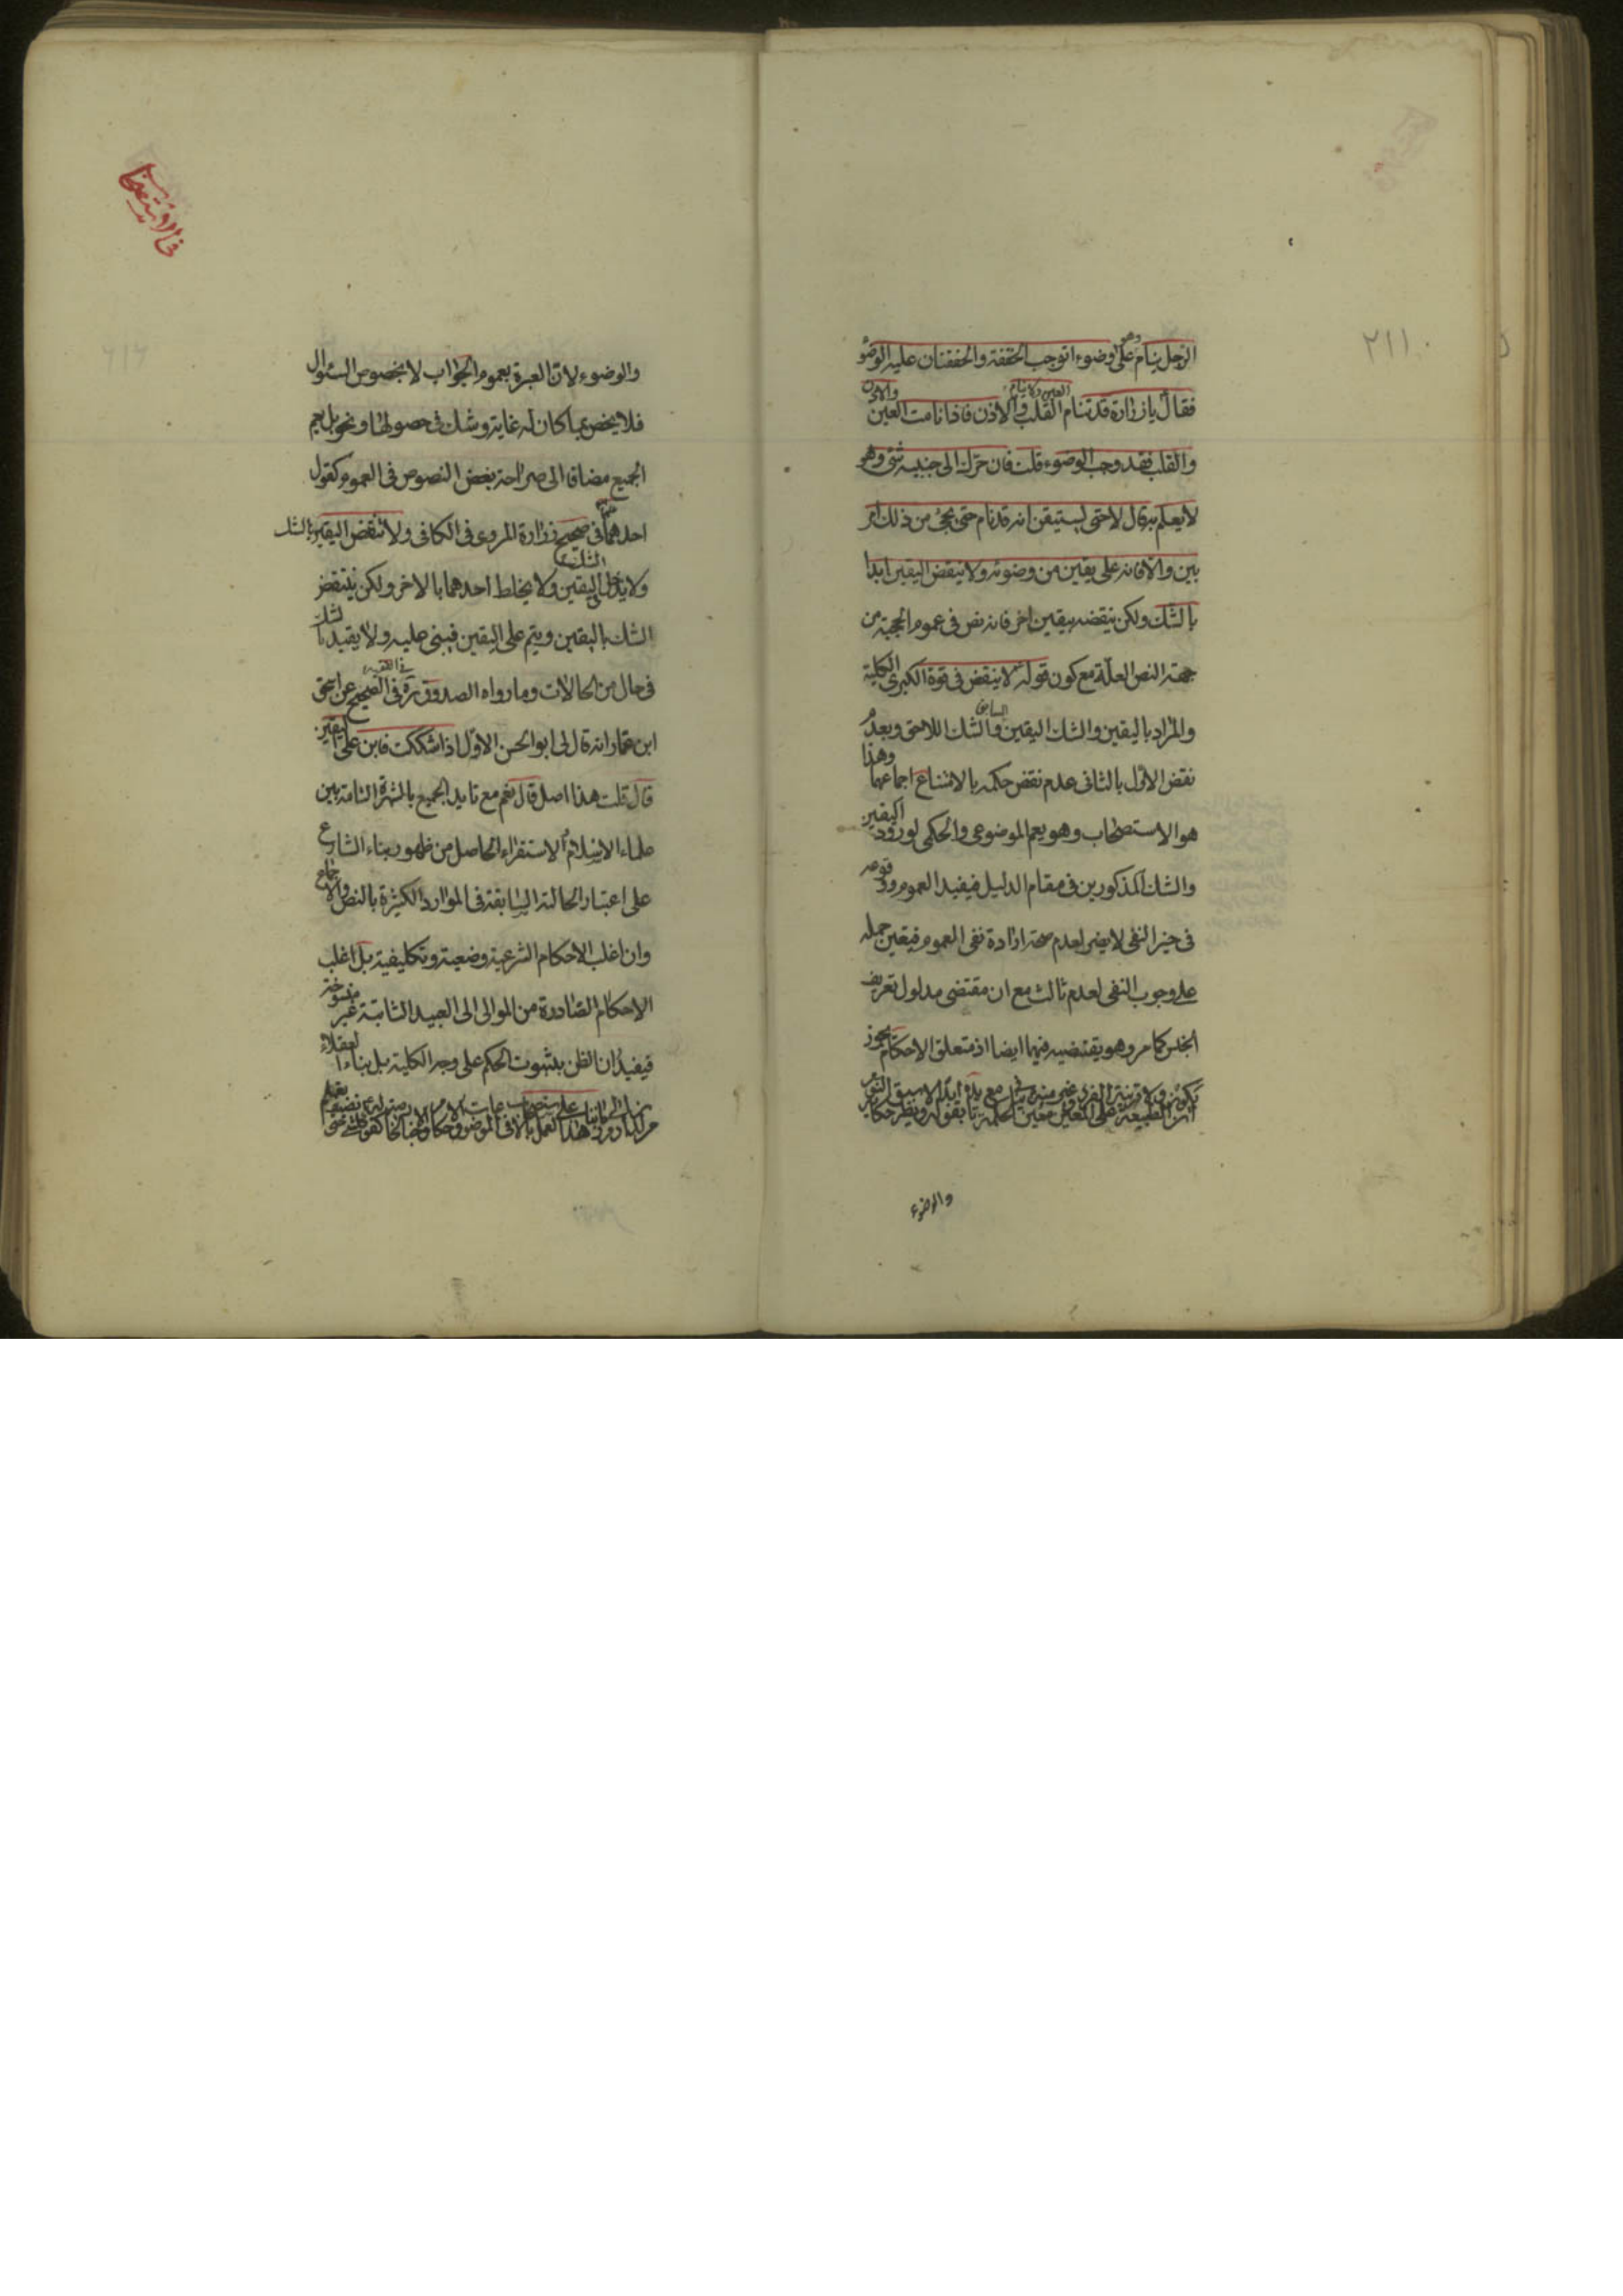 ٢١١
الرجل ينام وهو على وضوء اتوجب الخفقة والخفقتان عليه الوضوء
فقال يا زرارة قد تنام العين ولا ينام القلب والاذن فاذا نامت العين والاذن
والقلب فقد وجب الوضوء قلت فان حرك الى جنبه شئ وهو
لا يعلم به قال لا حتى يستيقن انه قد نام حتى يجئ من ذلك امر
بين والا فانه على يقين من وضوئه ولا ينقض اليقين ابدا
بالشك ولكن ينقضه بيقين اخر فانه نص فى عموم الحجية من
جهة النص العلة مع كون قوله لا ينقض فى قوة الكبرى الكلية
والمراد باليقين والشك اليقين السابق والشك اللاحق وبعدم
نقض الاول بالثانى عدم نقض حكمه بالامتناع اجماعهما وهذا
هو الاستصحاب وهو يعم الموضوعى والحكمى لورود اليقين
والشك المذكورين فى مقام الدليل فيفيد العموم ووقوعه
فى حيز النفى لا يضر لعدم صحة ارادة نفى العموم فيتعين حمله
على وجوب النفى لعدم ثالث مع ان مقتضى مدلول تعريف
الجنس كما مر وهو يقتضيه فيها ايضا اذ متعلق الاحكام يجوز
والوضوء
فى الاستصحاب
والوضوء لان العبرة بعموم الجواب لا بخصوص السئوال
فلا يخص بما كان له غاية وشك فى حصولها ونحو بل يعم
الجميع مضافا الى صراحة بعض النصوص فى العموم كقول
احدهما فى صحيح زرارة المروى فى الكافى ولا تنقض اليقين بالشك
ولا يدخل الشك فى اليقين ولا يخلط احدهما بالاخر ولكن ينتقض
الشك باليقين ويتم على اليقين فيبنى عليه ولا يعتد بالشك
فى حال من الحالات وما رواه الصدوق ره فى الفقيه فى الصحيح عن اسحق
ابن عمار انه قال لى ابو الحسن الاول اذا شككت فابن على اليقين
قال قلت هذا اصل قال نعم مع تاييد الجميع بالشهرة التامة بين
علماء الاسلام والاستقراء الحاصل من ظهور بناء الشارع
على اعتبار الحالة السابقة فى الموارد الكثيرة بالنص والاجماع
وان اغلب الاحكام الشرعية وضعية وتكليفية بل اغلب
الاحكام الصادرة من الموالى الى العبيد الثابتة غير منسوخة
فيفيدان الظن بثبوت الحكم على وجه الكلية بل بناء العقلاء